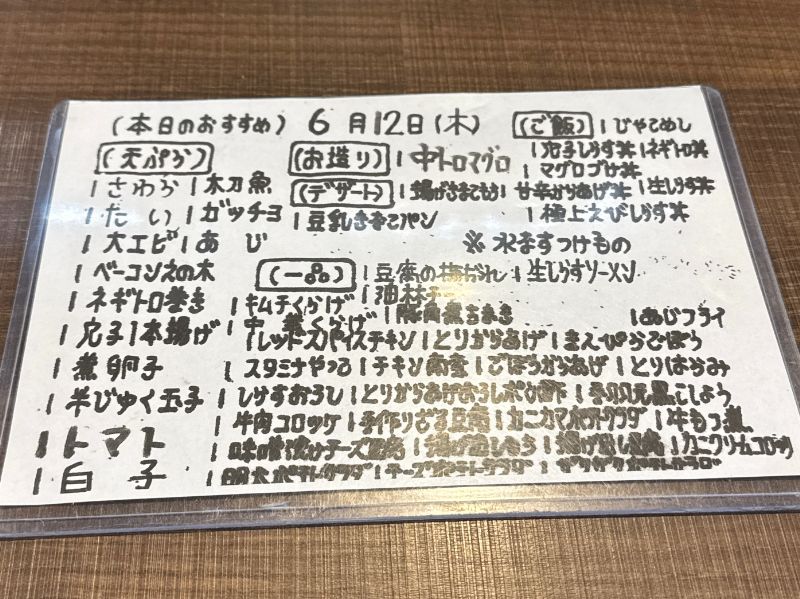 (本日のおすすめ) 6月12日(木)
(天ぷら)
|さわら |太刀魚
|たい |ガッチョ
|大エビ |あじ
|ベーコンえの木
|ネギトロ巻き
|穴子1本揚げ
|煮卵子
|半じゅく玉子
|トマト
|白子
(お造り) |中トロマグロ
(デザート)
|豆乳きなこパン
(ご飯) |じゃこめし
|穴子しらす丼 |ネギトロ丼
|マグロブケ丼
|甘辛からあげ丼 |生しらす丼
|極上えびしらす丼
※水ますつけもの
(一品) |豆腐の |生しらすソーメン
|キムチくらげ |油林チー
|中華くらげ
|あじフライ
|レッドスパイスチキン |とりからあげ |きんぴらごぼう
|スタミナやっこ |チキン南蛮 |ごぼうからあげ |とりはらみ
|しらすおろし |とりからあげおろしポン酢
|牛肉コロッケ |手作りざる豆腐 |カニカマポテトサラダ |牛もつ煮
|カニクリームコロッケ
|明太ポテトサラダ |チーズポテトサラダ